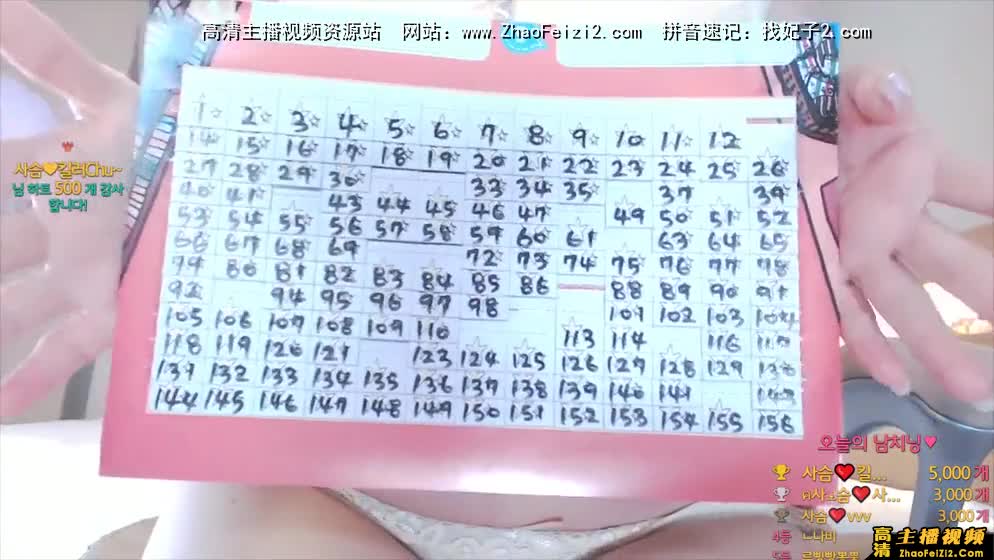 高清主播视频资源站 网站：www.ZhaoFeizi2.com 拼音速记：找妃子2.com
1 2 3 4 5 6 7 8 9 10 11 12
14 15 16 17 18 19 20 21 22 23 24 25 26
27 28 29 30 33 34 35 37 39
40 41 43 44 45 46 47 49 50 51 52
53 54 55 56 57 58 59 60 61 63 64 65
66 67 68 69 72 73 74 75 76 77 78
79 80 81 82 83 84 85 86 88 89 90 91
92 94 95 96 97 98 101 102 103 104
105 106 107 108 109 110 113 114 116 117
118 119 120 121 123 124 125 126 127 128 129 130
131 132 133 134 135 136 137 138 139 140 141 143
144 145 146 147 148 149 150 151 152 153 154 155 156
사솜❤킬러Chu~
님 하트 500 개 감사
합니다!
오늘의 남치닝♥
사솜❤킬... 5,000 개
사...솜❤사... 3,000 개
사솜❤vvv 3,000 개
4등 ㄴ나비
5등
高清 主播视频
ZhaoFeiZi2.Com